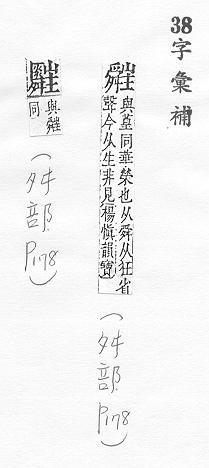 38字彙補
與葟同華榮也从舜从狂省
聲今从生非見楊慎韻寶
(舛部 P178)
與
同
(舛部 P178)